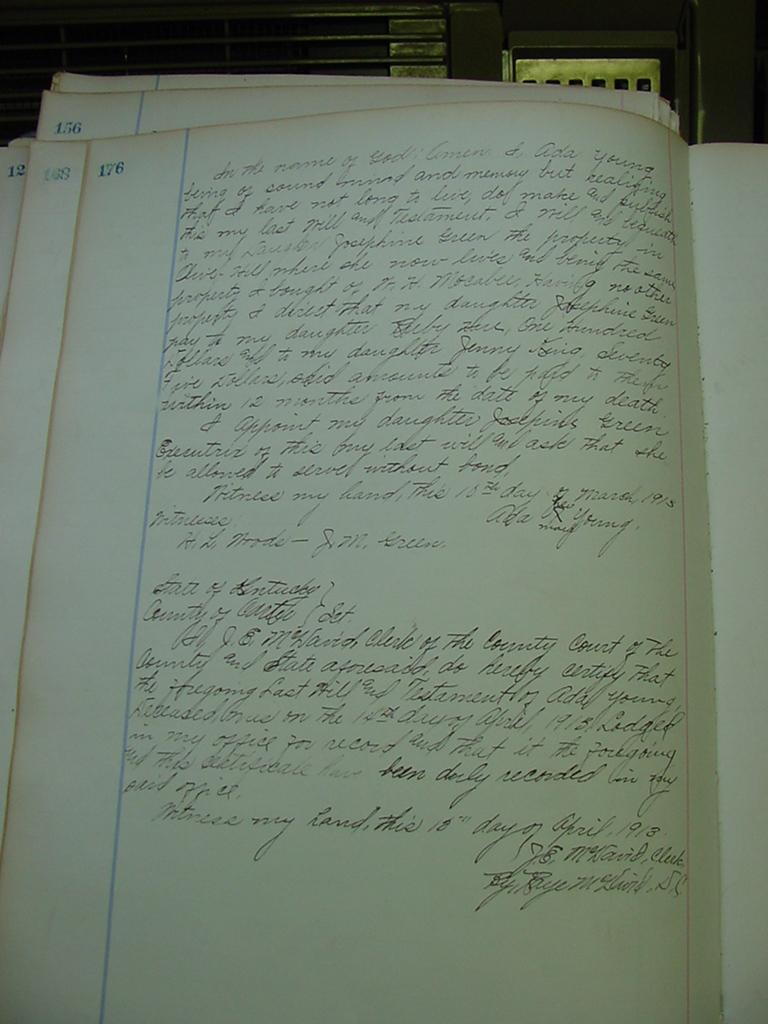 156
12 168 176
In the name of God: Amen. I, Ada Young
being of sound mind and memory but realizing
that I have not long to live, dof make and publish
this my last Will and Testament. I will and bequeath
to my Daughter Josephine Green the property in
Olive Hill where she now lives and being the same
property I bought of W. H. Mocabee, Having no other
property I direct that my daughter Josephine Green
pay to my daughter Ruby, One Hundred
Dollars and to my daughter Jenny King, Seventy
Five Dollars, said amounts to be paid to them
within 12 months from the date of my death.
I appoint my daughter Josephine Green
Executrix of this my last will and ask that she
be allowed to serve without bond.
Witness my hand, this 10th day of March, 1913
Ada her Young.
mark
Witnesses:
H. L. Woods - J. M. Green.
State of Kentucky }
County of Carter } Sct.
I, J. E. McDavid, Clerk of the County Court of the
County and State aforesaid, do hereby certify that
the foregoing Last Will and Testament of Ada Young,
Deceased, was on the 14th day of April, 1913, Lodged
in my office for record and that it the foregoing
and this certificate have been duly recorded in my
said office.
Witness my hand, this 18th day of April, 1913.
J. E. McDavid, Clerk
By, Faye McDavid, D.C.